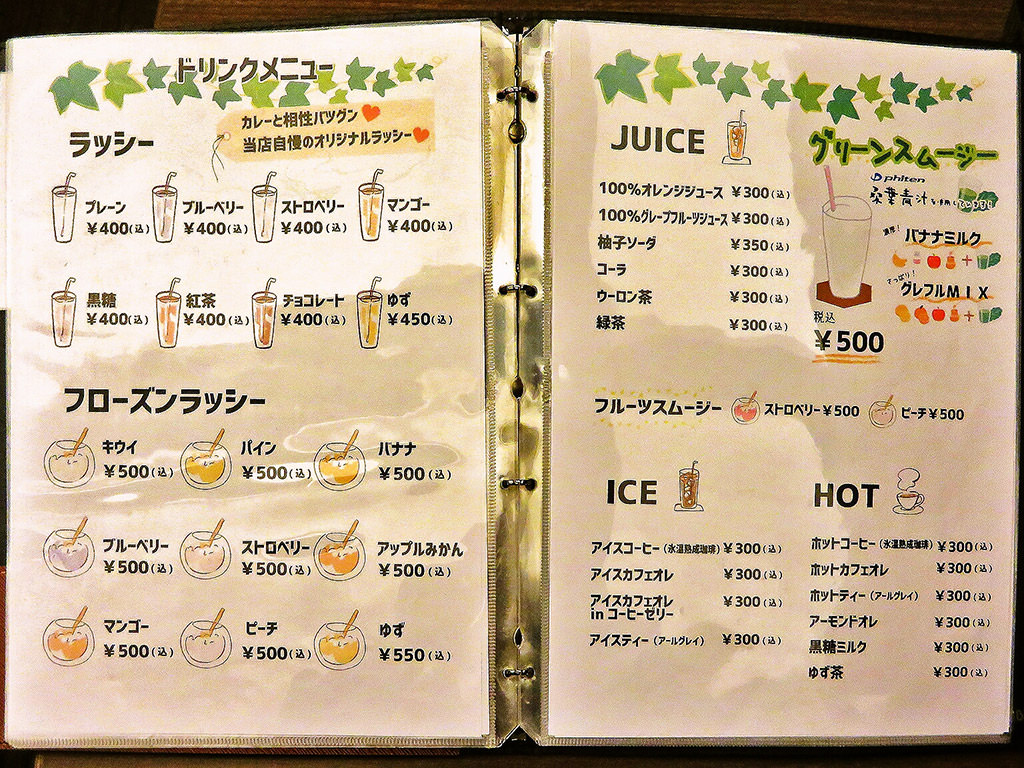 ドリンクメニュー
カレーと相性バツグン
当店自慢のオリジナルラッシー
ラッシー
プレーン ¥400(込)
ブルーベリー ¥400(込)
ストロベリー ¥400(込)
マンゴー ¥400(込)
黒糖 ¥400(込)
紅茶 ¥400(込)
チョコレート ¥400(込)
ゆず ¥450(込)
フローズンラッシー
キウイ ¥500(込)
パイン ¥500(込)
バナナ ¥500(込)
ブルーベリー ¥500(込)
ストロベリー ¥500(込)
アップルみかん ¥500(込)
マンゴー ¥500(込)
ピーチ ¥500(込)
ゆず ¥550(込)
JUICE
100%オレンジジュース ¥300(込)
100%グレープフルーツジュース ¥300(込)
柚子ソーダ ¥350(込)
コーラ ¥300(込)
ウーロン茶 ¥300(込)
緑茶 ¥300(込)
グリーンスムージー
phiten
桑葉青汁を使用しています!
濃厚!
バナナミルク
さっぱり!
グレフルMIX
税込
¥500
フルーツスムージー ストロベリー¥500 ピーチ¥500
ICE
アイスコーヒー(氷温熟成珈琲) ¥300(込)
アイスカフェオレ ¥300(込)
アイスカフェオレ ¥300(込)
in コーヒーゼリー
アイスティー(アールグレイ) ¥300(込)
HOT
ホットコーヒー(氷温熟成珈琲) ¥300(込)
ホットカフェオレ ¥300(込)
ホットティー(アールグレイ) ¥300(込)
アーモンドオレ ¥300(込)
黒糖ミルク ¥300(込)
ゆず茶 ¥300(込)